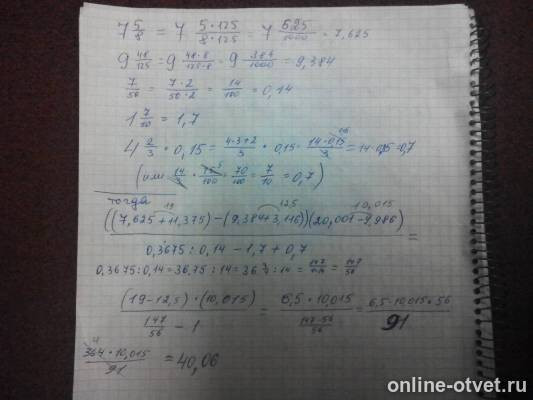 7 5/8 = 7 5·125/8·125 = 7 625/1000 = 7,625
9 48/125 = 9 48·8/125·8 = 9 384/1000 = 9,384
7/50 = 7·2/50·2 = 14/100 = 0,14
1 7/10 = 1,7
4 2/3 · 0,15 = 4·3+2/3 · 0,15 = 14·0,15/3 = 14·0,05=0,7
(или 14/3 · 15/100 = 70/100 = 7/10 = 0,7)
тогда 19 12,5 10,015
((7,625+11,375)-(9,384+3,116))(20,001-9,986) =
0,3675:0,14-1,7+0,7
0,3675:0,14=36,75:14=36 3/4:14= 147/4·14 = 147/56
(19-12,5)·(10,015) / 147/56 - 1 = 6,5·10,015 / 147-56/56 = 6,5·10,015·56 / 91
364·10,015 / 91 = 40,06
online-otvet.ru